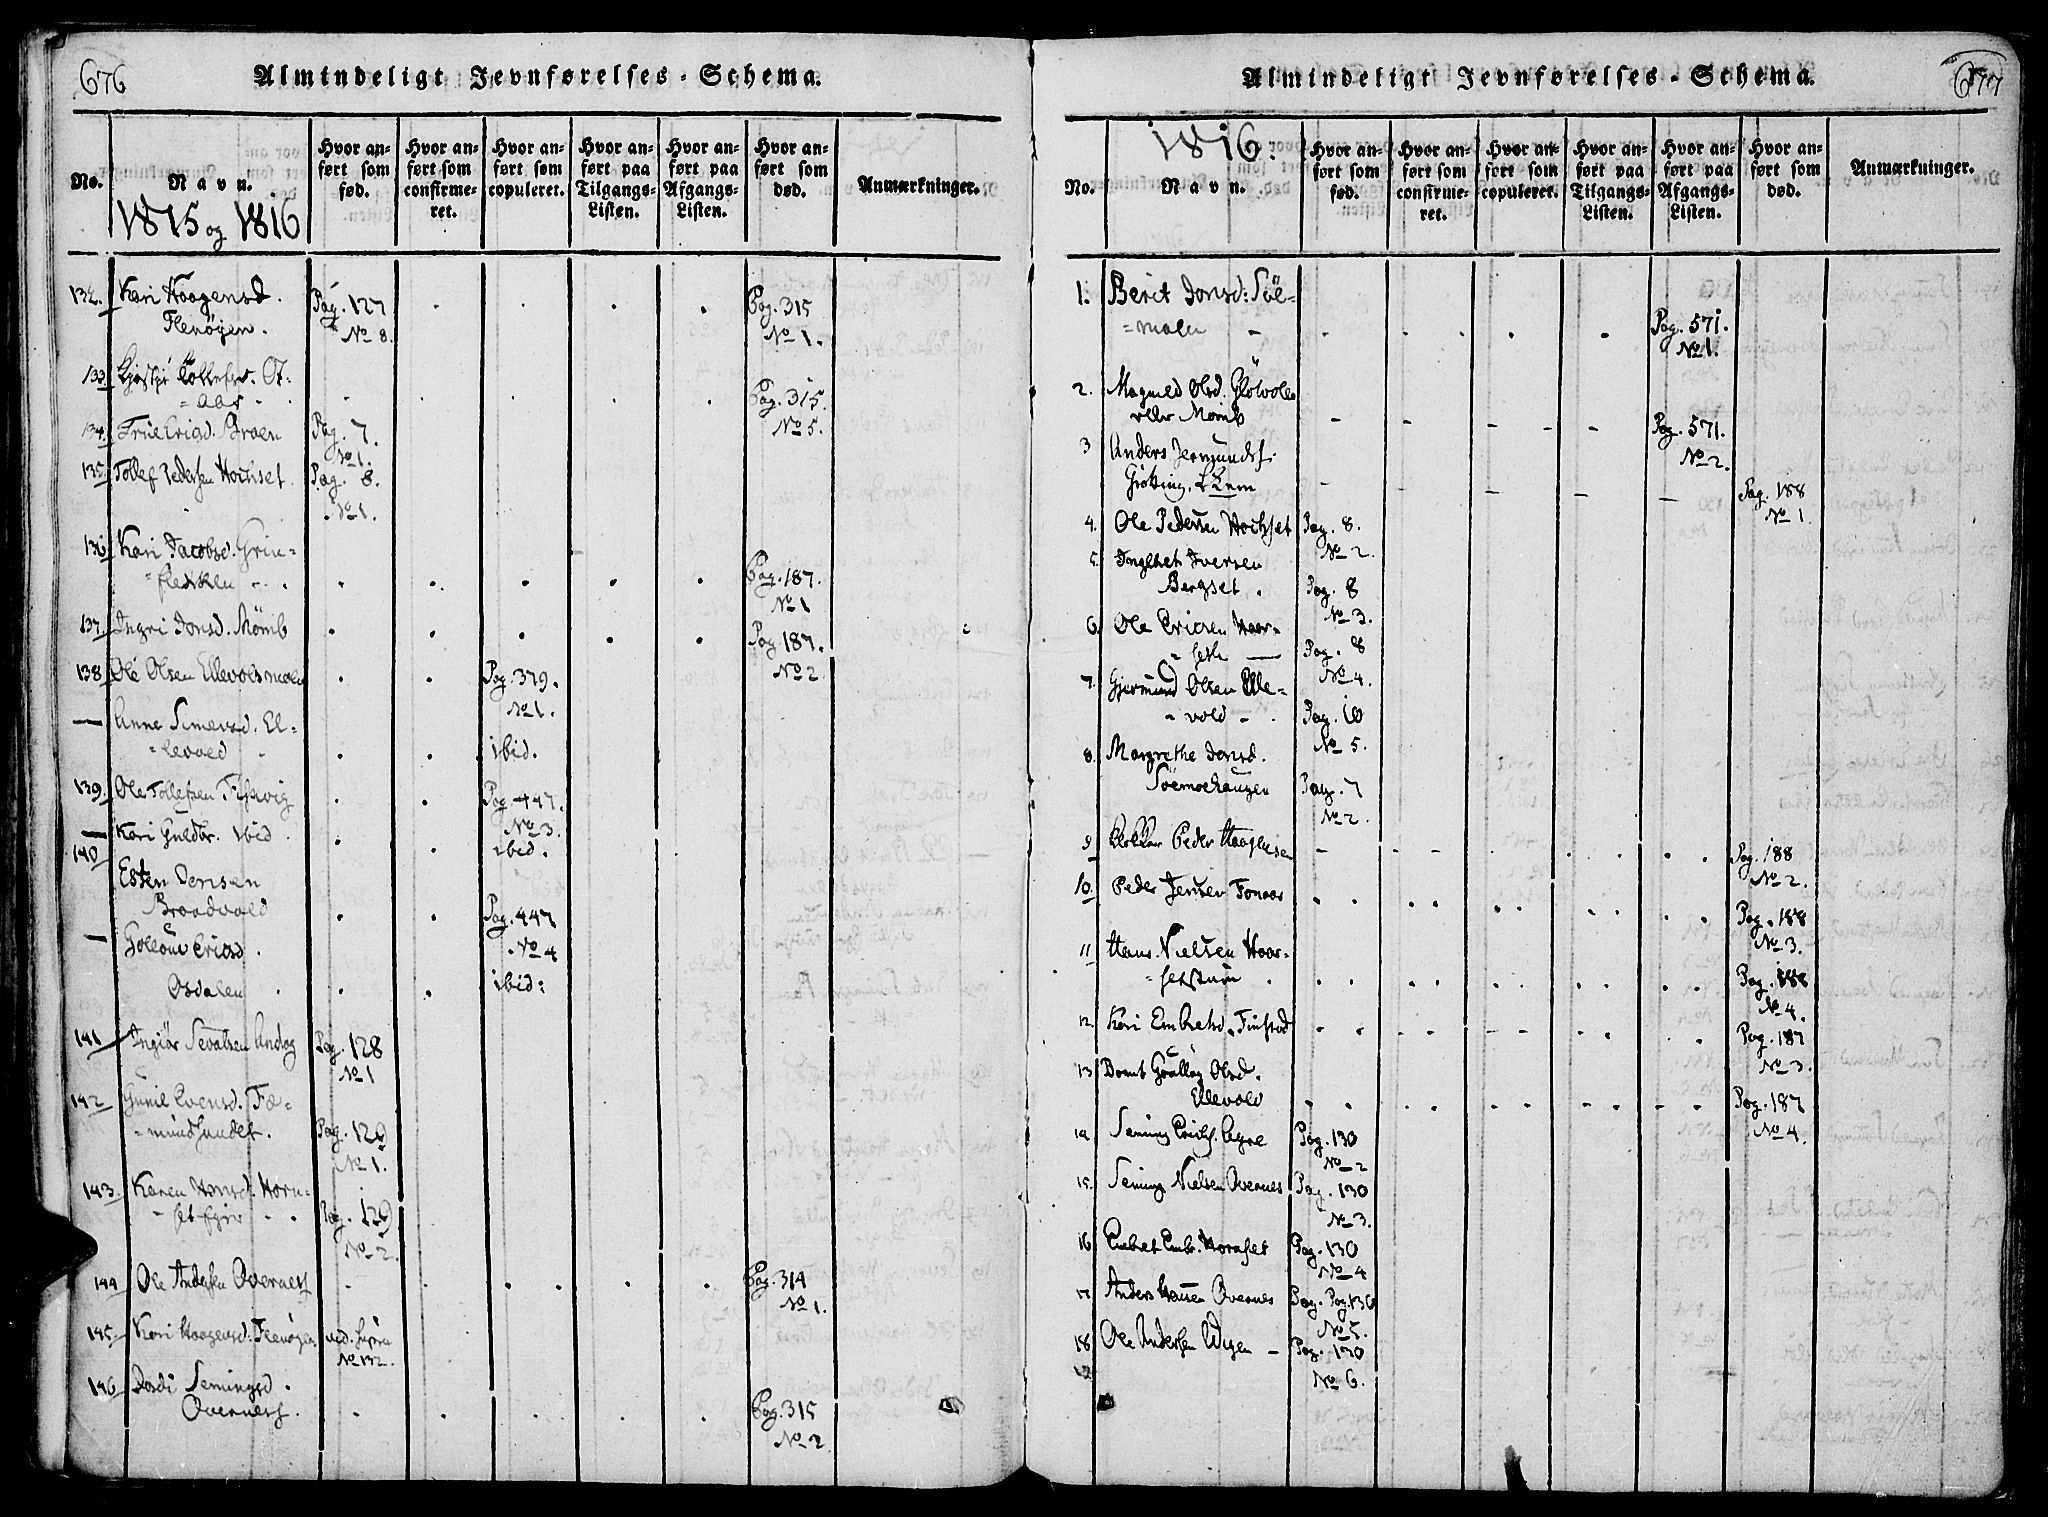 676
Almindeligt Jevnførelses-Schema.
No.
Navn.
1815 og 1816
Hvor anført som fød.
Hvor anført som confirmeret.
Hvor anført som copuleret.
Hvor anført paa Tilgangs-Listen.
Hvor anført paa Afgangs-Listen.
Hvor anført som død.
Anmærkninger.
132. Kari Haagensd. Pag. 127 Pag. 315
Flenøgen. No 8. No 1.
133
Pag. 315.
134. Erigsd. Braen Pag. 7. No 5.
No 1.
135 Tollef Pedersen Hochset. Pag. 8.
No 1.
136 Kari Jacobsd. Grin-
=flekken Pag. 187.
No 1
137. Ingri Jonsd. Mömb Pag. 187.
138 Ole Olsen Ellevolsmoen Pag. 379. No 2
No 1.
— Anne Simensd. El-
=levold ibid.
139. Ole Tollefsen Fiskvig Pag. 447.
No 3.
— Kari Guldbr. ibid. ibid.
140
Esten Jensen
Braadvold Pag. 447
No 4
— Golloug Erigsd.
Osdalen ibid:
141 Ingiör Sevalsen Andrag Pag. 128
No 1
142 Gunil Evensd. Fæ-
=mundsundet. Pag. 129
No 1.
143. Karen Hansd. Horn-
=set Pag. 129
No 2.
144 Ole Andersen Øvernes Pag. 314
No 1.
145. Kari Haagensd. Flenøgen vid. supra
No 132.
146 Dordi Semingsd.
Øvernes. Pag. 315
No 2
677
Almindeligt Jevnførelses-Schema.
1816.
No.
Navn.
Hvor anført som fød.
Hvor anført som confirmeret.
Hvor anført som copuleret.
Hvor anført paa Tilgangs-Listen.
Hvor anført paa Afgangs-Listen.
Hvor anført som død.
Anmærkninger.
1. Berit Jonsd: Söe-
=moen Pag. 571.
No 1.
2. Magnild Olsd. Glöwolen
eller Mömb Pag. 571.
3 Anders Jermundsf. No 2.
Grötting, Pag. 188
No 1
4. Ole Pedersen Hochset Pag. 8.
No 2.
5. Ingebret Iversen
Bergset Pag. 8
No 3.
6. Ole Ericsen Haar-
=seth Pag. 8
No 4.
7. Gjermund Olsen Elle-
=vold Pag. 10
No 5.
8. Margrethe Jonsd.
Söemoehaugen Pag. 7
No 2.
9 Klokker Peder Haagensen Pag. 188
No 2.
10. Peder Jensen Fonaas Pag. 188
No 3.
11 Hans Nielsen Haar-
=setstuen Pag. 188
No 4.
12. Kari Embretsd. Finstad Pag. 187
No 3.
13 Barnet Golloug Olsd.
Ellevold Pag. 187
No 4.
14. Seming Erichs. Agre Pag. 130
No 2
15. Seming Nielsen Øvernes Pag. 130
No 3.
16 Embret Embr. Hornset Pag. 130
No 4
17 Anders Hansen Øvernes Pag. Pag. 130
No 5.
18 Ole Andersen Wigen Pag. 130
No 6.
19